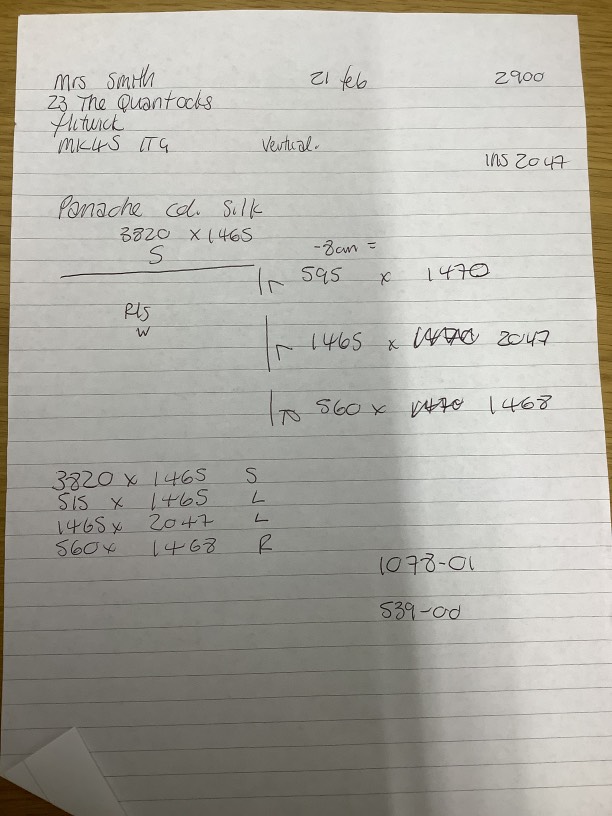 Mrs Smith 21 feb 2900
23 The Quantocks
flitwick
MK45 1TG Vertical.
ins 2047
Panache col. Silk
3820 x 1465 -8cm =
S
595 x 1470
R/S
W
1465 x 2047
560 x 1468
3820 x 1465 S
515 x 1465 L
1465 x 2047 L
560 x 1468 R
1078-01
539-00